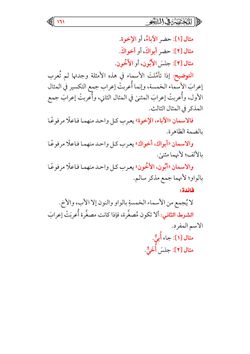 ١٦١
مثال [١]: حضر الآباءُ، أو الإخوة.
مثال [٢]: حضر أبواكَ، أو أخواكَ.
مثال [٣]: جلسَ الأَبُون، أو الأَخُون.
التوضيح: إذا تأمَّلتَ الأسماء في هذه الأمثلة وجدتها لم تُعرب
إعرابَ الأسماء الخمسة، وإنما أُعربتْ إعرابَ جمع التكسير في المثال
الأول، وأُعربتْ إعرابَ المثنى في المثال الثاني، وأُعربتْ إعرابَ جمع
المذكر في المثال الثالث.
فالاسمان «الآباء، الإخوة» يعرب كل واحد منهما فاعلًا مرفوعًا
بالضمة الظاهرة.
والاسمان «أبواك، أخواك» يعرب كل واحد منهما فاعلًا مرفوعًا
بالألف؛ لأنهما مثنى.
والاسمان «أبون، الأخون» يعرب كل واحد منهما فاعلًا مرفوعًا
بالواو؛ لأنهما جمع مذكر سالم.
فائدة:
لا يُجمع من الأسماء الخمسة بالواو والنون إلا الأب، والأخ.
الشرط الثاني: ألا تكون مُصغَّرة، فإذا كانت مصغَّرة أُعربَتْ إعرابَ
الاسم المفرد.
مثال [١]: جاء أُبيٌّ.
مثال [٢]: جلسَ أُخَيٌّ.